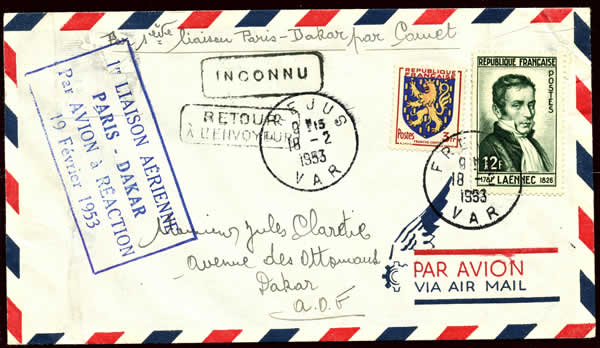 Par 1ère liaison Paris-Dakar par Comet
1re LIAISON AÉRIENNE
PARIS - DAKAR
Par AVION à RÉACTION
19 Février 1953
INCONNU
RETOUR
À L'ENVOYEUR
FREJUS
9H15
18-2
1953
VAR
REPUBLIQUE
FRANÇAISE
Postes
3F
REPUBLIQUE FRANÇAISE
POSTES
12F
LAENNEC 1826
FREJUS
9H
18-2
1953
VAR
Monsieur Jules Claretie
Avenue des Ottomans
Dakar
A.O.F
PAR AVION
VIA AIR MAIL